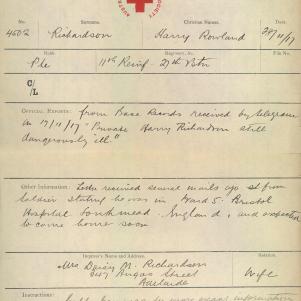 SOCIETY
No. Surname. Christian Names. Date.
4602 Richardson Harry Rowland 28/11/17
Rank. Regiment, &c. File No.
Pte 11th Reinf 27th Bttn
C/L
OFFICIAL REPORTS: from Base Records received by telegram
on 17/11/17 "Private Harry Richardson still
dangerously ill."
Other Information: received several mails ago from
Soldier stating he was in Ward 5. Bristol
Hospital Southmead England, and expected
to come home soon
Inquirer's Name and Address. Relation.
Mrs Daisy M. Richardson Wife
Angas Street
Adelaide
Instructions: